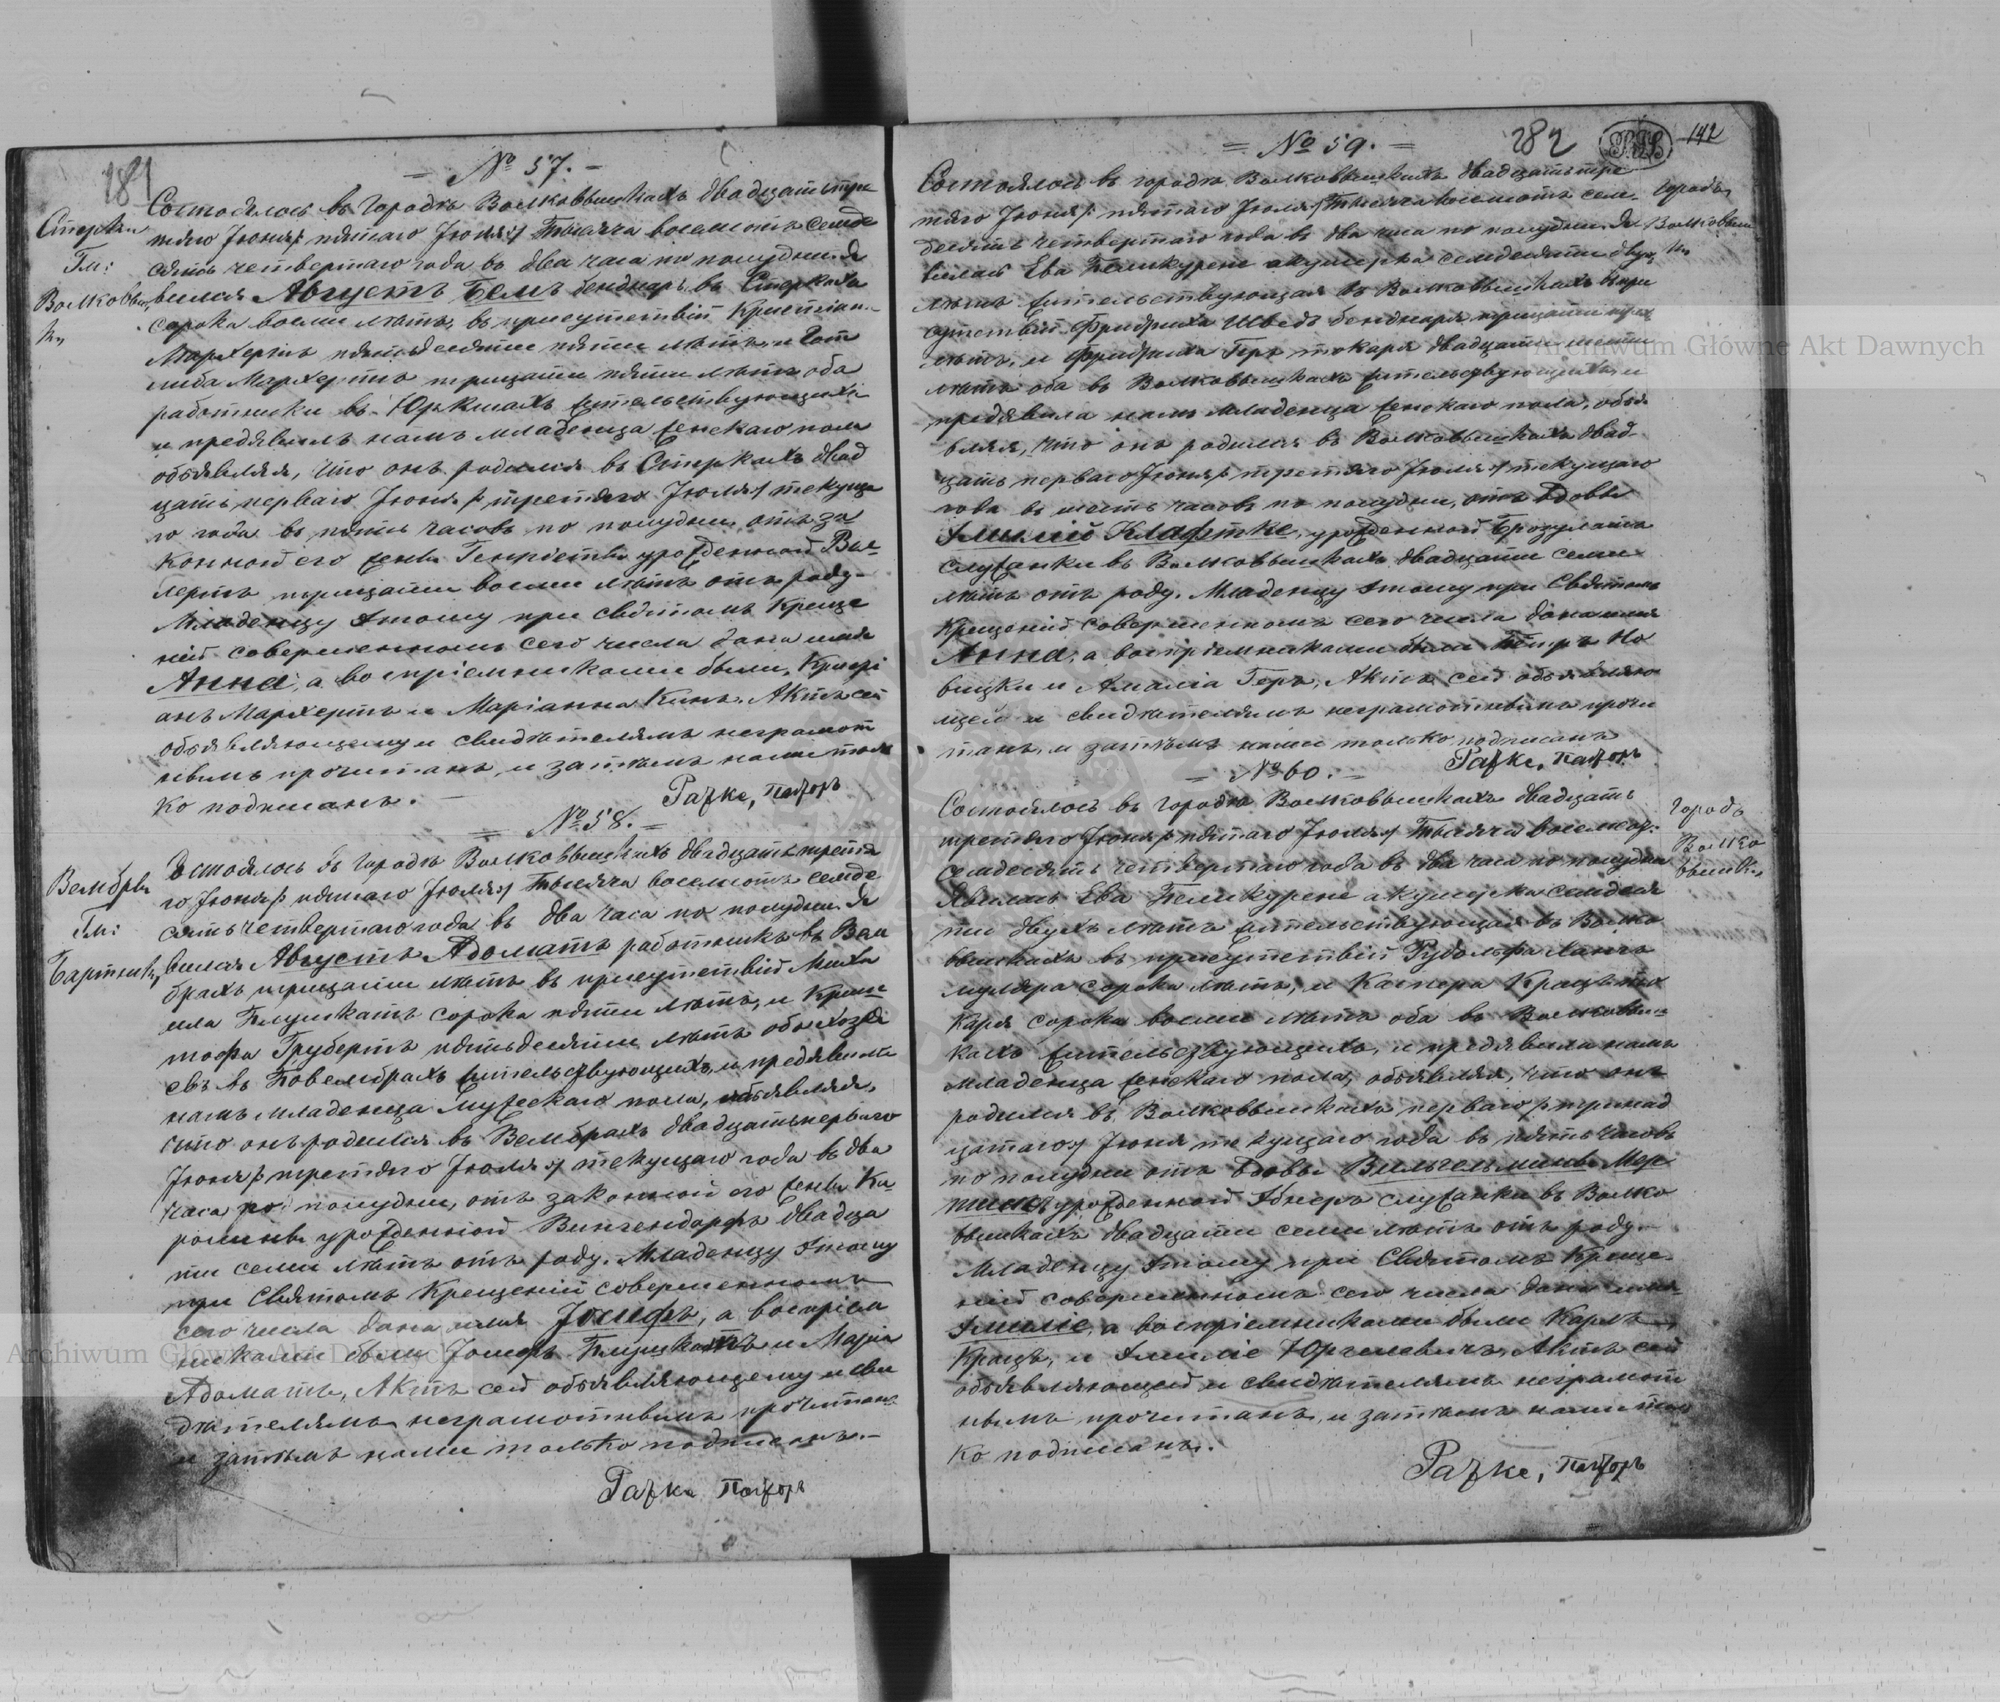 181
= № 57. =
Стерки
Гм:
Волковыш
ки
Состоялось въ городѣ Волковышкахъ двадцать тре
тяго Іюня /: пятаго Іюля :/ тысяча восемсотъ семде
сятъ четвертаго года въ два часа по полудни. Я
вился Августъ Бемъ бенднарь въ Стеркахъ
сорока восми лѣтъ, въ присутствіи Кристіана
Мархертъ пятьдесяти пяти лѣтъ, и Гот
либа Мархертъ трицати пяти лѣтъ оба
работники въ Юркшахъ жительствующихъ
и предявилъ намъ младенца женскаго пола
объявляя, что онъ родился въ Стеркахъ двад
цать перваго Іюня /: третяго Іюля :/ текуща
го года въ пять часовъ по полудни отъ за
конной его жены Генріетты урожденной
трицати восми лѣтъ отъ роду.
Младенцу этому при святомъ Креще
ній совершенномъ сего числа дано имя
Анна, а воспріемниками были, Кристі
анъ Мархертъ и Маріанна Кинъ. Актъ сей
объявляющему и свидѣтелямъ неграмот
нымъ прочитанъ, и затѣмъ нами толь
ко подписанъ.
Рачке, Пасторъ
= № 58. =
Велибры
Гм:
Бартники
Состоялось въ городѣ Волковышкахъ двадцать третя
го Іюня /: пятаго Іюля :/ тысяча восемсотъ семде
сятъ четвертаго года въ два часа по полудни. Я
вился Августъ Адоматъ работникъ въ Вели
брахъ трицати лѣтъ въ присутствій Миха
ила Плушкатъ сорока пяти лѣтъ, и Крис
тофа Грубертъ пятьдесяти лѣтъ обы хозяе
евъ въ Повелибрахъ жительствующихъ, и предявилъ
намъ младенца мужескаго пола, объявляя,
что онъ родился въ Велибрахъ двадцать перваго
Іюня /: третяго Іюля :/ текущаго года въ два
часа по полудни, отъ законной его жены Ка
ролины урожденной Вингендорфъ двадца
ти семи лѣтъ отъ роду. Младенцу этому
при Святомъ Крещеній совершенномъ
сего числа дано имя Іосифъ, а воспріем
никами были Іосифъ и Марія
Адоматъ, Актъ сей объявляющему и сви
дѣтелямъ неграмотнымъ прочитанъ
и затѣмъ нами только подписанъ.
Рачке Пасторъ
= № 59. =
282
142
Городъ
Волковыш
ки
Состоялось въ городѣ Волковышкахъ двадцать тре
тяго Іюня /: пятаго Іюля :/ тысяча восемсотъ сем
десятъ четвертаго года въ два часа по полудни. Я
вилась Ева Пемкурене акушерка семдесяти двухъ
лѣтъ жительствующая въ Волковышкахъ въ при
сутствіи Фридриха Шведъ бенднаря трицати трехъ
лѣтъ, и Фридриха Геръ токаря двадцати шести
лѣтъ оба въ Волковышкахъ жительствующихъ, и
предявила намъ младенца женскаго пола, объя
вляя, что онъ родился въ Волковышкахъ двад
цать перваго Іюня /: третяго Іюля :/ текущаго
года въ шесть часовъ по полудни, отъ вдовы
Эмилій Клафтке, урожденной
служанки въ Волковышкахъ двадцати семи
лѣтъ отъ роду. Младенцу этому при Святомъ
Крещеній совершенномъ сего числа дано имя
Анна, а воспріемниками были Петръ Но
вицки и Амалія Геръ. Актъ сей объявляю
щей и свидѣтелямъ неграмотнымъ прочи
танъ, и затѣмъ нами только подписанъ
Рачке, Пасторъ
= № 60. =
Городъ
Волко
вышки
Состоялось въ городѣ Волковышкахъ двадцать
третяго Іюня /: пятаго Іюля :/ тысяча восемсотъ
семдесятъ четвертаго года въ два часа по полудни
Явилась Ева Пемкурене акушерка семдеся
ти двухъ лѣтъ жительствующая въ Волко
вышкахъ въ присутствіи Рудольфа Хангъ
муляра сорока лѣтъ, и Каспера Кращъ то
каря сорока восми лѣтъ оба въ Волковыш
кахъ жительствующихъ, и предявила намъ
младенца женскаго пола, объявляя, что онъ
родился въ Волковышкахъ перваго /: тринад
цатаго :/ Іюня текущаго года въ пять часовъ
по полудни отъ вдовы Вильгельмины Мер
тинсъ урожденной Абнеръ служанки въ Волко
вышкахъ двадцати семи лѣтъ отъ роду.
Младенцу этому при Святомъ Креще
ній совершенномъ сего числа дано имя
Эмиліе, а воспріемниками были Карлъ
Кращъ, и Эмиліе Юргелевичъ, Актъ сей
объявляющей и свидѣтелямъ неграмот
нымъ прочитанъ, и затѣмъ нами толь
ко подписанъ.
Рачке, Пасторъ
Archiwum Główne Akt Dawnych
Archiwum Główne Akt Dawnych